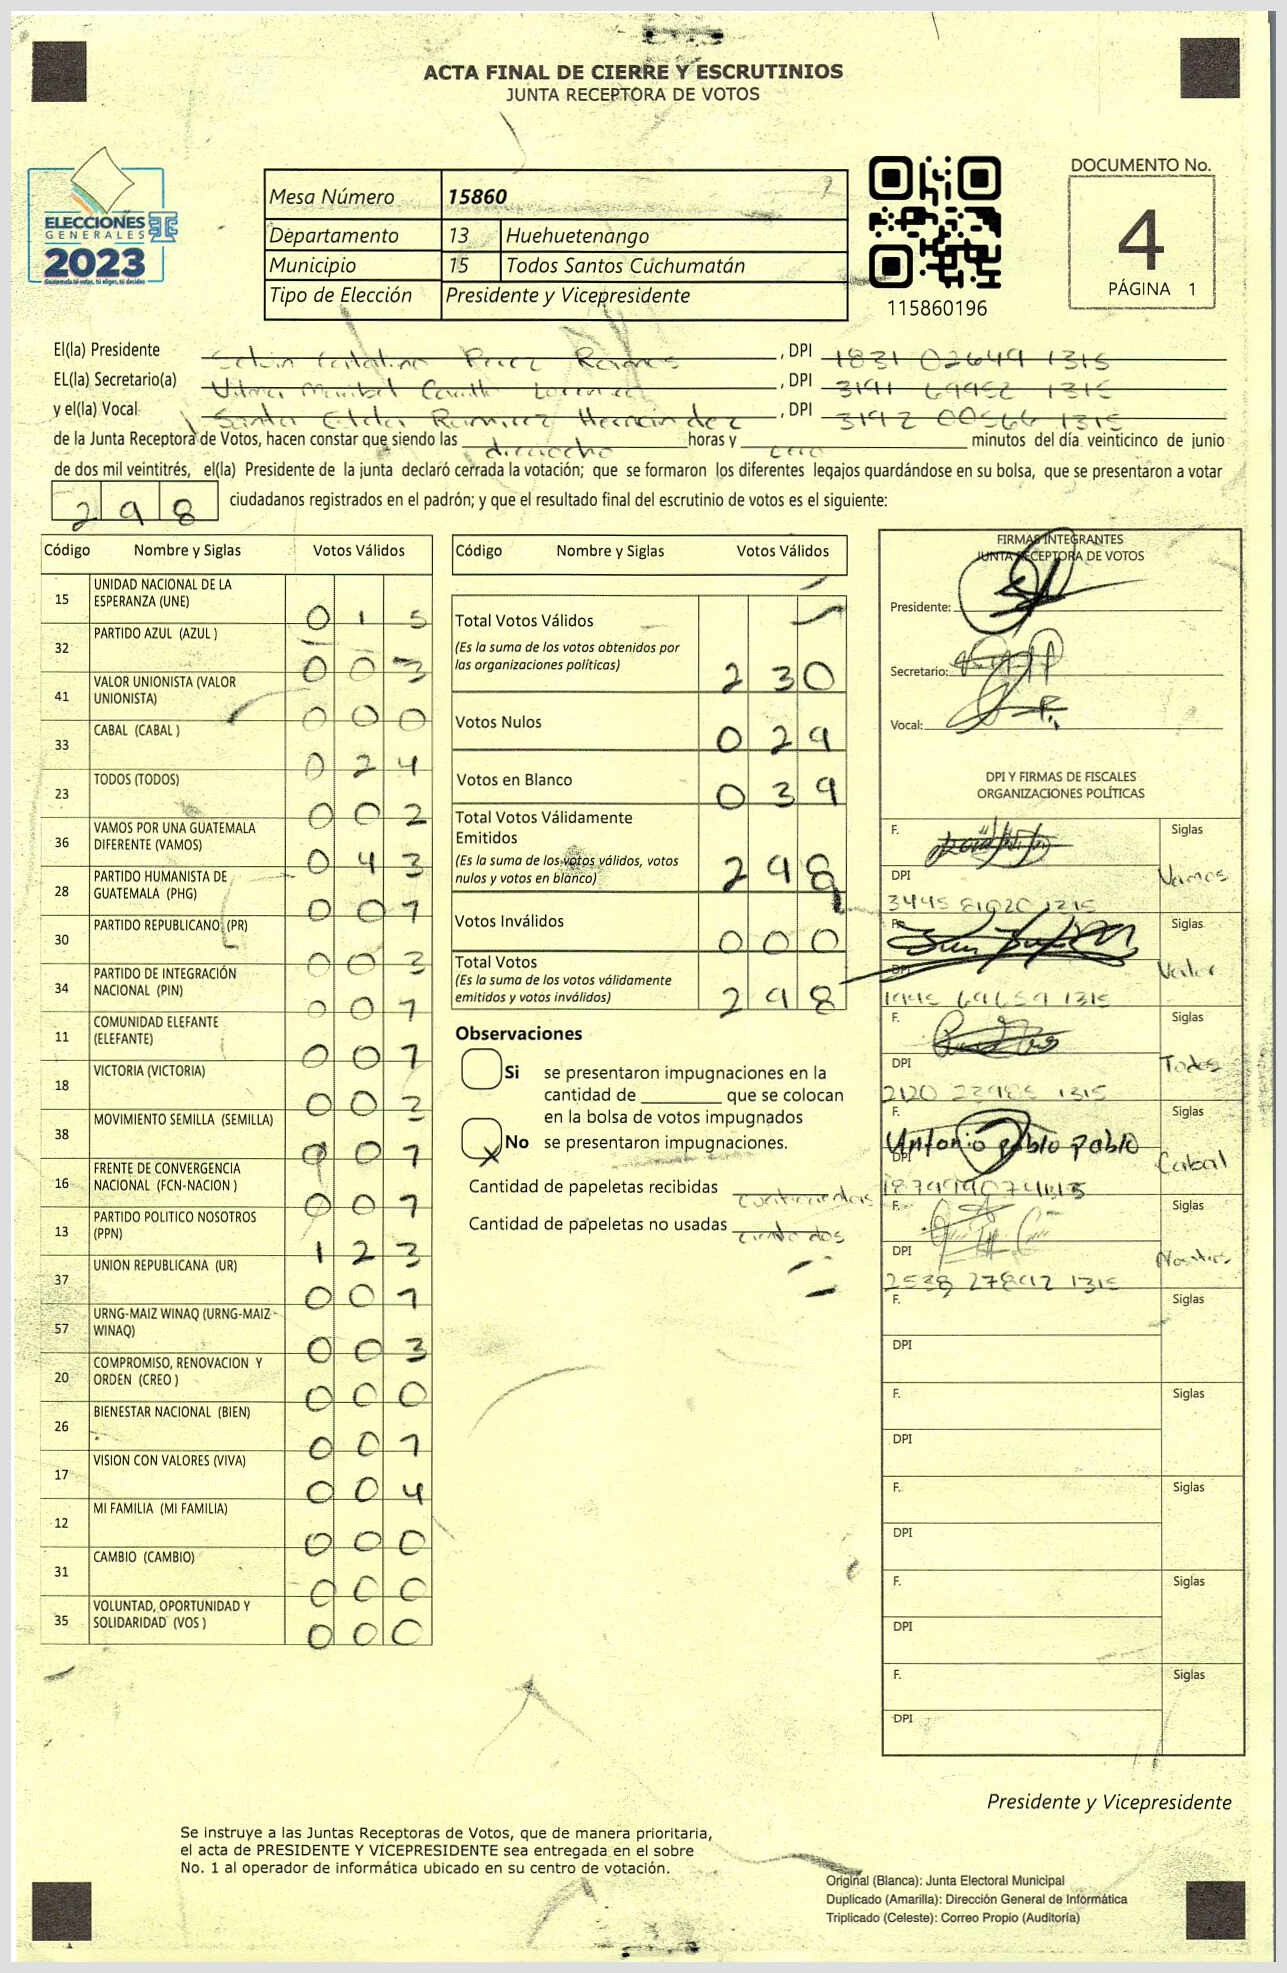 ACTA FINAL DE CIERRE Y ESCRUTINIOS
JUNTA RECEPTORA DE VOTOS
ELECCIONES
GENERALES
2023
Mesa Número 15860
Departamento 13 Huehuetenango
Municipio 15 Todos Santos Cuchumatán
Tipo de Elección Presidente y Vicepresidente
115860196
DOCUMENTO No.
4
PÁGINA 1
El(la) Presidente Perez , DPI 1831 02649 1315
EL(la) Secretario(a) Vilma Maribel , DPI 3191 69952 1315
y el(la) Vocal Ramirez Hernández , DPI 3192 00566 1315
de la Junta Receptora de Votos, hacen constar que siendo las dieciocho horas y cero minutos del día veinticinco de junio
de dos mil veintitrés, el(la) Presidente de la junta declaró cerrada la votación; que se formaron los diferentes legajos quardándose en su bolsa, que se presentaron a votar
298 ciudadanos registrados en el padrón; y que el resultado final del escrutinio de votos es el siguiente:
Código Nombre y Siglas Votos Válidos
15 UNIDAD NACIONAL DE LA ESPERANZA (UNE) 0 1 5
32 PARTIDO AZUL (AZUL ) 0 0 3
41 VALOR UNIONISTA (VALOR UNIONISTA) 0 0 0
33 CABAL (CABAL ) 0 2 4
23 TODOS (TODOS) 0 0 2
36 VAMOS POR UNA GUATEMALA DIFERENTE (VAMOS) 0 4 3
28 PARTIDO HUMANISTA DE GUATEMALA (PHG) 0 0 1
30 PARTIDO REPUBLICANO (PR) 0 0 3
34 PARTIDO DE INTEGRACIÓN NACIONAL (PIN) 0 0 1
11 COMUNIDAD ELEFANTE (ELEFANTE) 0 0 1
18 VICTORIA (VICTORIA) 0 0 2
38 MOVIMIENTO SEMILLA (SEMILLA) 0 0 1
16 FRENTE DE CONVERGENCIA NACIONAL (FCN-NACION ) 0 0 1
13 PARTIDO POLITICO NOSOTROS (PPN) 1 2 3
37 UNION REPUBLICANA (UR) 0 0 1
57 URNG-MAIZ WINAQ (URNG-MAIZ WINAQ) 0 0 3
20 COMPROMISO, RENOVACION Y ORDEN (CREO ) 0 0 0
26 BIENESTAR NACIONAL (BIEN) 0 0 1
17 VISION CON VALORES (VIVA) 0 0 4
12 MI FAMILIA (MI FAMILIA) 0 0 0
31 CAMBIO (CAMBIO) 0 0 0
35 VOLUNTAD, OPORTUNIDAD Y SOLIDARIDAD (VOS ) 0 0 0
Código Nombre y Siglas Votos Válidos
Total Votos Válidos
(Es la suma de los votos obtenidos por
las organizaciones políticas) 2 3 0
Votos Nulos 0 2 9
Votos en Blanco 0 3 9
Total Votos Válidamente
Emitidos
(Es la suma de los votos válidos, votos
nulos y votos en blanco) 2 9 8
Votos Inválidos 0 0 0
Total Votos
(Es la suma de los votos válidamente
emitidos y votos inválidos) 2 9 8
Observaciones
Si se presentaron impugnaciones en la
cantidad de ________ que se colocan
en la bolsa de votos impugnados
X No se presentaron impugnaciones.
Cantidad de papeletas recibidas cuatrocientas
Cantidad de papeletas no usadas ciento dos
FIRMAS INTEGRANTES
JUNTA RECEPTORA DE VOTOS
Presidente:
Secretario:
Vocal:
DPI Y FIRMAS DE FISCALES
ORGANIZACIONES POLÍTICAS
F. Siglas
DPI Vamos
3445 81920 1315
F. Siglas
DPI Valor
1995 69659 1315
F. Siglas
DPI Todos
2120 23985 1315
F. Siglas
Antonio pablo pablo
DPI Cabal
F. Siglas
DPI Nosotros
2538 27892 1315
F. Siglas
DPI
F. Siglas
DPI
F. Siglas
DPI
F. Siglas
DPI
F. Siglas
DPI
Presidente y Vicepresidente
Se instruye a las Juntas Receptoras de Votos, que de manera prioritaria,
el acta de PRESIDENTE Y VICEPRESIDENTE sea entregada en el sobre
No. 1 al operador de informática ubicado en su centro de votación.
Original (Blanca): Junta Electoral Municipal
Duplicado (Amarilla): Dirección General de Informática
Triplicado (Celeste): Correo Propio (Auditoría)